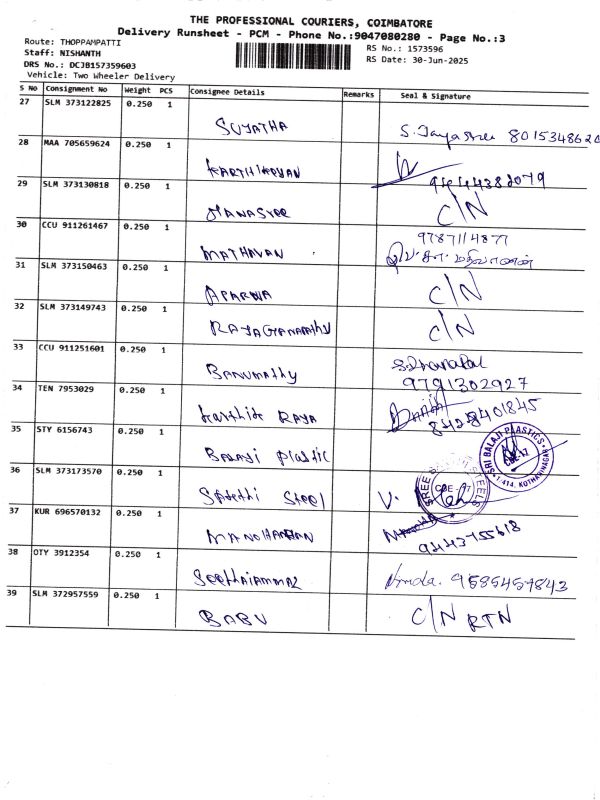 THE PROFESSIONAL COURIERS, COIMBATORE
Delivery Runsheet - PCM - Phone No.:9047080280 - Page No.:3
Route: THOPPAMPATTI
RS No.: 1573596
Staff: NISHANTH
RS Date: 30-Jun-2025
DRS No.: DCJB157359603
Vehicle: Two Wheeler Delivery
S No Consignment No Weight PCS Consignee Details Remarks Seal & Signature
27 SLM 373122825 0.250 1
SUJATHA S. Jayasree 8015348620
28 MAA 705659624 0.250 1
KARTHIKEYAN 9444382079
29 SLM 373130818 0.250 1
MANASREE C/N
30 CCU 911261467 0.250 1
9787114877
MATHAVAN
31 SLM 373150463 0.250 1
APARNA C/N
32 SLM 373149743 0.250 1
C/N
33 CCU 911251601 0.250 1
BANUMATHY S.Dhanapal
9791302927
34 TEN 7953029 0.250 1
Karthik RAJA 8428401845
35 STY 6156743 0.250 1
Balaji Plastic
SRI BALAJI PLASTICS
CBE-17
36 SLM 373173570 0.250 1
Steel
CBE-17
37 KUR 696570132 0.250 1
MANOHARAN 9443755618
38 OTY 3912354 0.250 1
Seethaiammal 9585457843
39 SLM 372957559 0.250 1
BABU C/N RTN